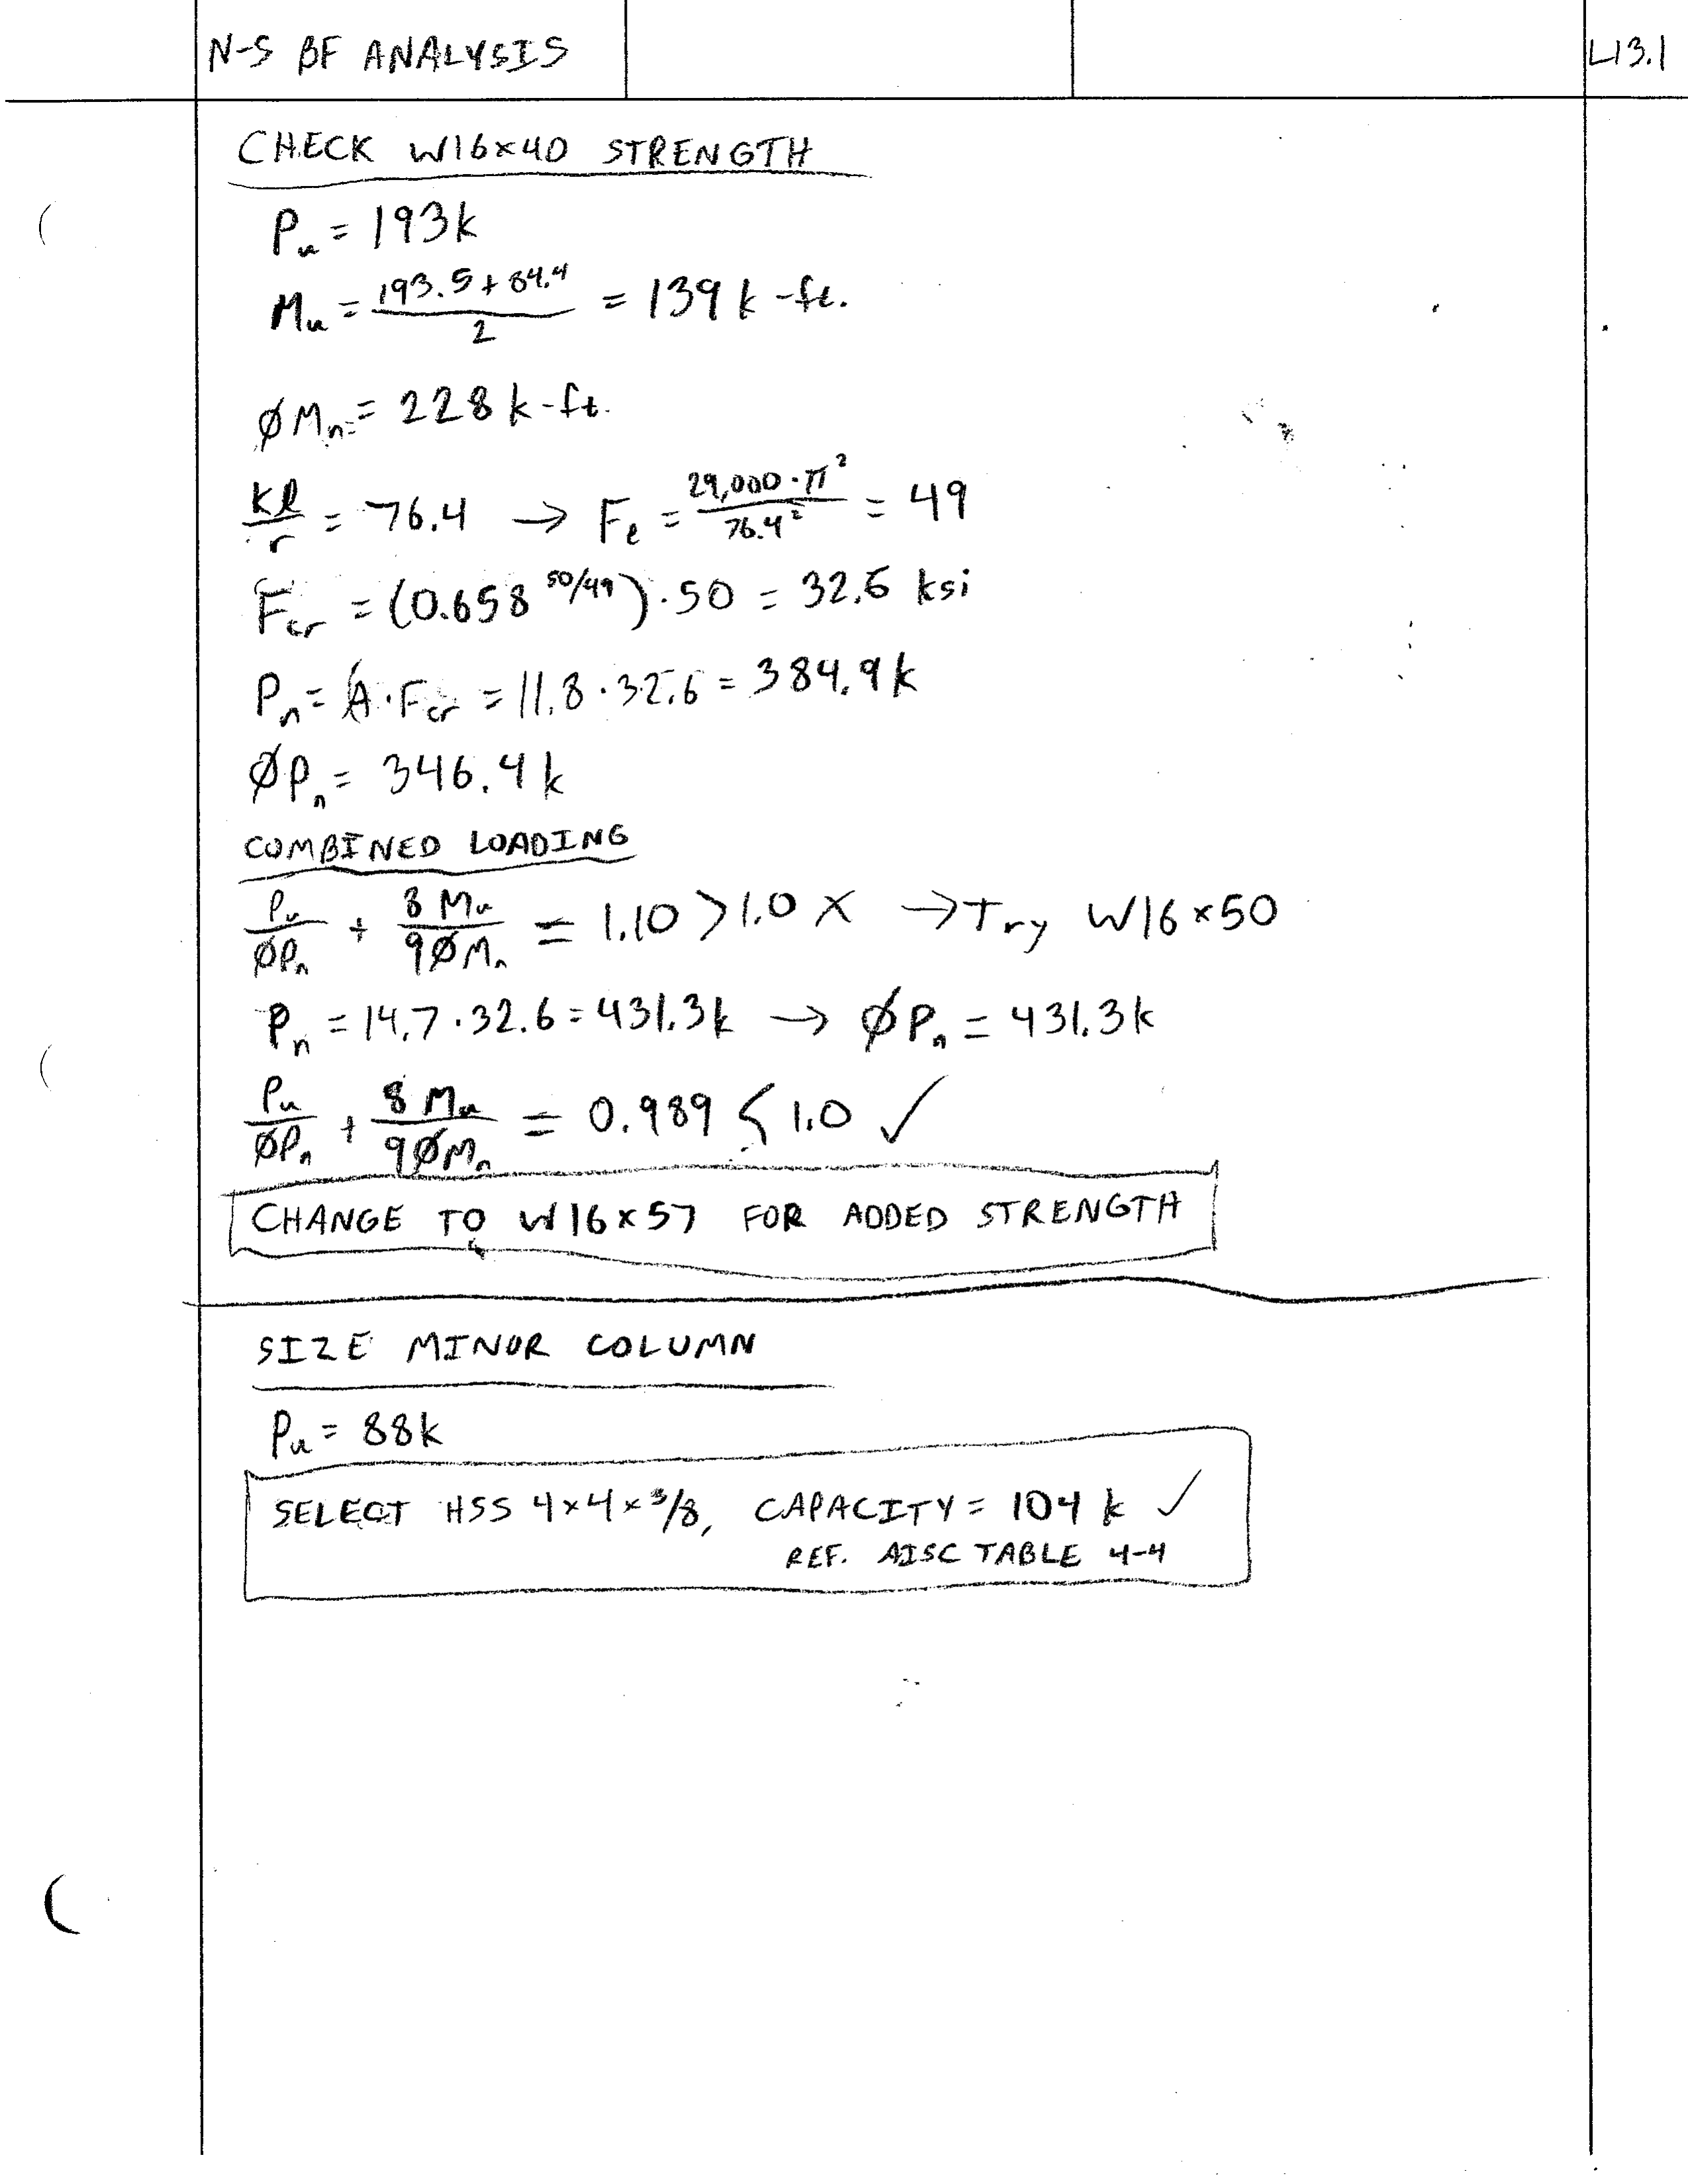 N-S BF ANALYSIS L13.1
CHECK W16x40 STRENGTH
Pu = 193k
Mu = (193.5 + 84.4)/2 = 139 k-ft.
ØMn = 228 k-ft.
kl/r = 76.4 → Fe = (29,000·π²)/76.4² = 49
Fcr = (0.658^50/49)·50 = 32.6 ksi
Pn = A·Fcr = 11.8·32.6 = 384.9k
ØPn = 346.4k
COMBINED LOADING
Pu/ØPn + 8Mu/9ØMn = 1.10 > 1.0 X → Try W16x50
Pn = 14.7·32.6 = 431.3k → ØPn = 431.3k
Pu/ØPn + 8Mu/9ØMn = 0.989 < 1.0 ✓
CHANGE TO W16x57 FOR ADDED STRENGTH
SIZE MINOR COLUMN
Pu = 88k
SELECT HSS 4x4x3/8, CAPACITY = 104 k ✓
REF. AISC TABLE 4-4